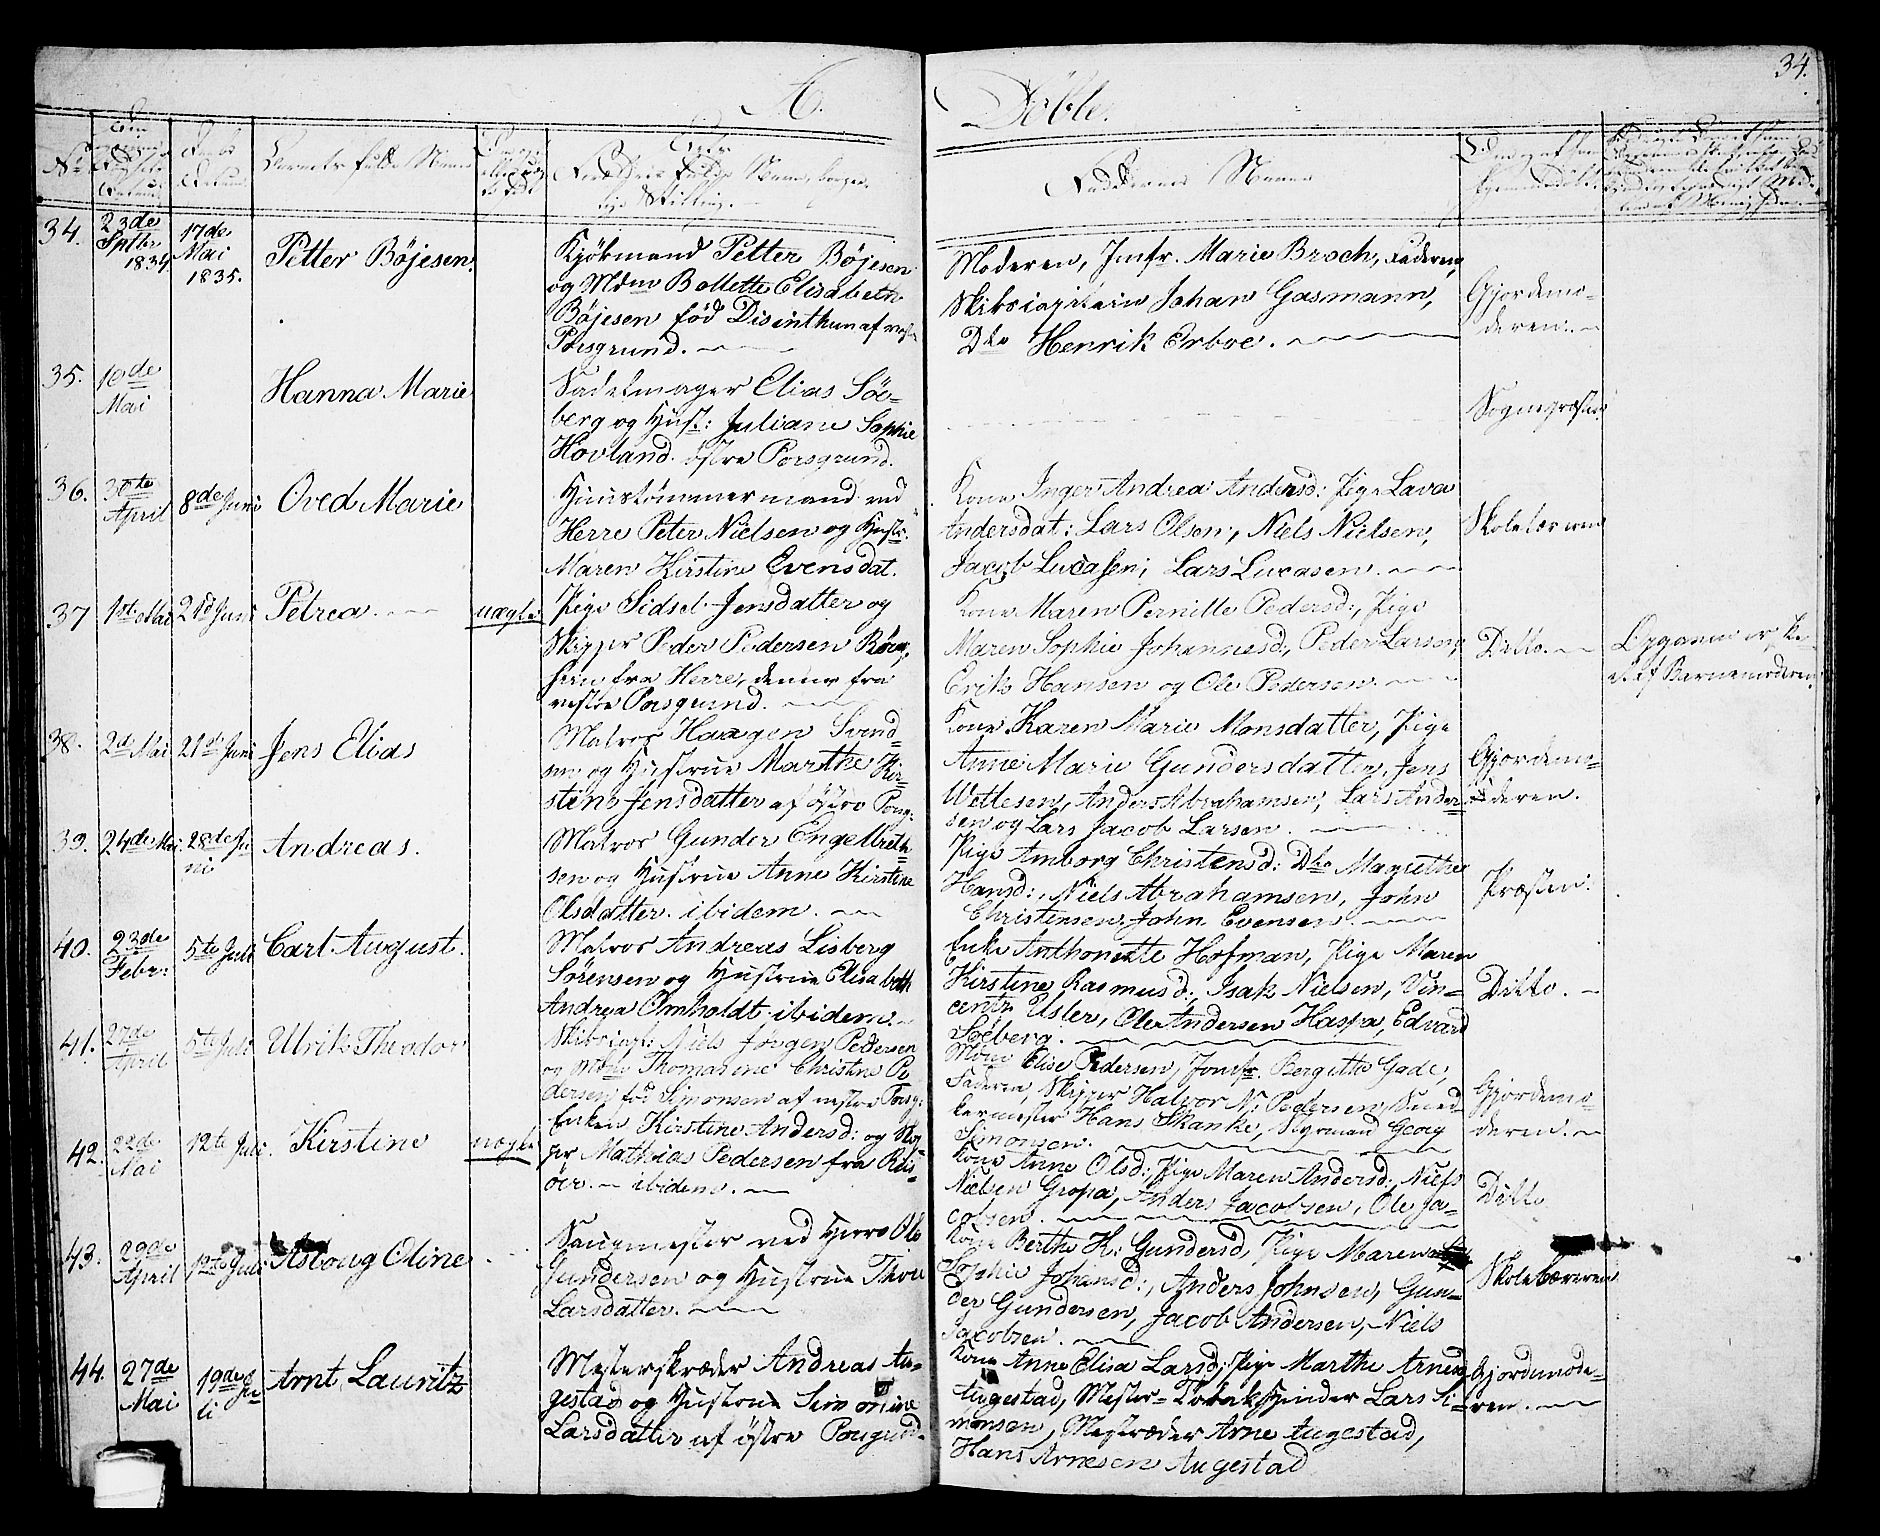 34.
A. Döbte.
No
Barnets fulde Navn
Faddernes Navne
34.
23de
Sptbr
1834
17de
Mai
1835.
Petter Böjesen.
Kjökmand Petter Böjesen
og Mdm Bollette Elisabeth
Böjesen född Disinthun af vest
Porsgrund.
Moderen, Jmfr. Marie Broch, Faderen,
Skibscapitain Johan Gasmann,
Dto Henrik Erboe.
Gjordemo-
deren.
35.
10de
Mai
Hanna Marie
Sadelmager Elias Söe-
berg og Hust: Juliane Sophie
Hovland. östre Porsgrund.
Sognepræsten
36.
30te
April
8de Juni
Oved Marie
Huustömmermand ved
Herre Peter Nielsen og Hustr:
Maren Kirstine Evensdat.
Kone Inger Andrea Andersd: Pige Lava
Andersdat: Lars Olsen, Niels Nielsen,
Jacob Lucasen; Lars Lucasen.
Skolelæreren
37
1ste Mai
21d Juni
Petrea.
uægte
Pige Sidsel Jensdatter og
Skipper Peder Pedersen
fra Herre, denne fra
vestre Porsgrund.
Kone Maren Pernille Pedersd:, Pige
Maren Sophie Johannesd:, Peder Larsen,
Erik Hansen og Ole Pedersen.
Ditto.
Opgaven er
af Barnemoderen
38.
2d Mai
21d Juni
Jens Elias
Matros Haagen Svend-
sen og Hustrue Marthe Kir-
stine Jensdatter af östre Porsg:
Kone Karen Marie Monsdatter, Pige
Anne Marie Gundersdatter, Jens
Wettesen, Anders Abrahamsen, Lars Ander-
sen og Lars Jacob Larsen.
Gjordemo-
deren.
39.
24de Mai.
28de Ju-
ni
Andreas.
Matros Gunder Engelbreth-
sen og Hustrue Anne Kirstine
Olsdatter. ibidem.
Pige Amborg Christensd: Dto Margrethe
Hansd:, Niels Abrahamsen, John
Christensen, John Evensen.
Præsten:
40.
23de
Febr:
5te Juli
Carl August.
Matros Andreas Lisberg
Sörensen og Hustrue Elisabeth
Andrea Omholdt. ibidem.
Enke Anthonette Hofman, Pige Maren
Kirstine Rasmusd:, Isak Nielsen, Vin-
cents Usler, Ole Andersen Haspa, Edvard
Söeberg.
Ditto.
41.
27de
April
5te Juli
Ulrik Theodor
Skibscapt: Niels Jörgen Pedersen
og Mdm Thomasine Christine Pe
dersen föd Simonsen af vestre Porsg:
Mdm Elise Pedersen, Jomfr. Bergitte Gade,
Faderen, Skipper Halvor N: Pedersen, Sned-
kermester Hans Skanke, Styrmand Georg
Simonsen.
Gjordemo-
deren.
42.
22de
Mai
12te Juli
Kirstine
uægte
Enken Kirstine Andersd: og Skip-
per Mathias Pedersen fra Riis-
öer. ibidem.
Kone Anne Olsd:, Pige Maren Andersd:, Niels
Nielsen Gropa, Anders Jacobsen, Ole Ja-
cobsen.
Ditto
43.
29de
April
12te Juli
Asboug Oline
Saugmester ved Herre Ole
Gundersen og Hustrue Thore
Larsdatter.
Kone Berthe K: Gundersd, Pige Maren
Sophie Johansd:, Anders Johnsen, Gun-
der Gundersen, Jacob Andersen, Niels
Jacobsen.
Skolelæreren
44.
27de
Mai
19de Ju-
li
Arnt Lauritz
Mesterskræder Andreas Au-
gestad og Hustrue Simonine
Larsdatter af östre Porsgrud.
Kone Anne Elisa Larsd; Pige Marthe Arnesd
Augestad, Mester-Tobakspinder Lars Si-
monsen, Mestræder Arne Augestad,
Hans Arnesen Augestad
Gjordemode-
ren.